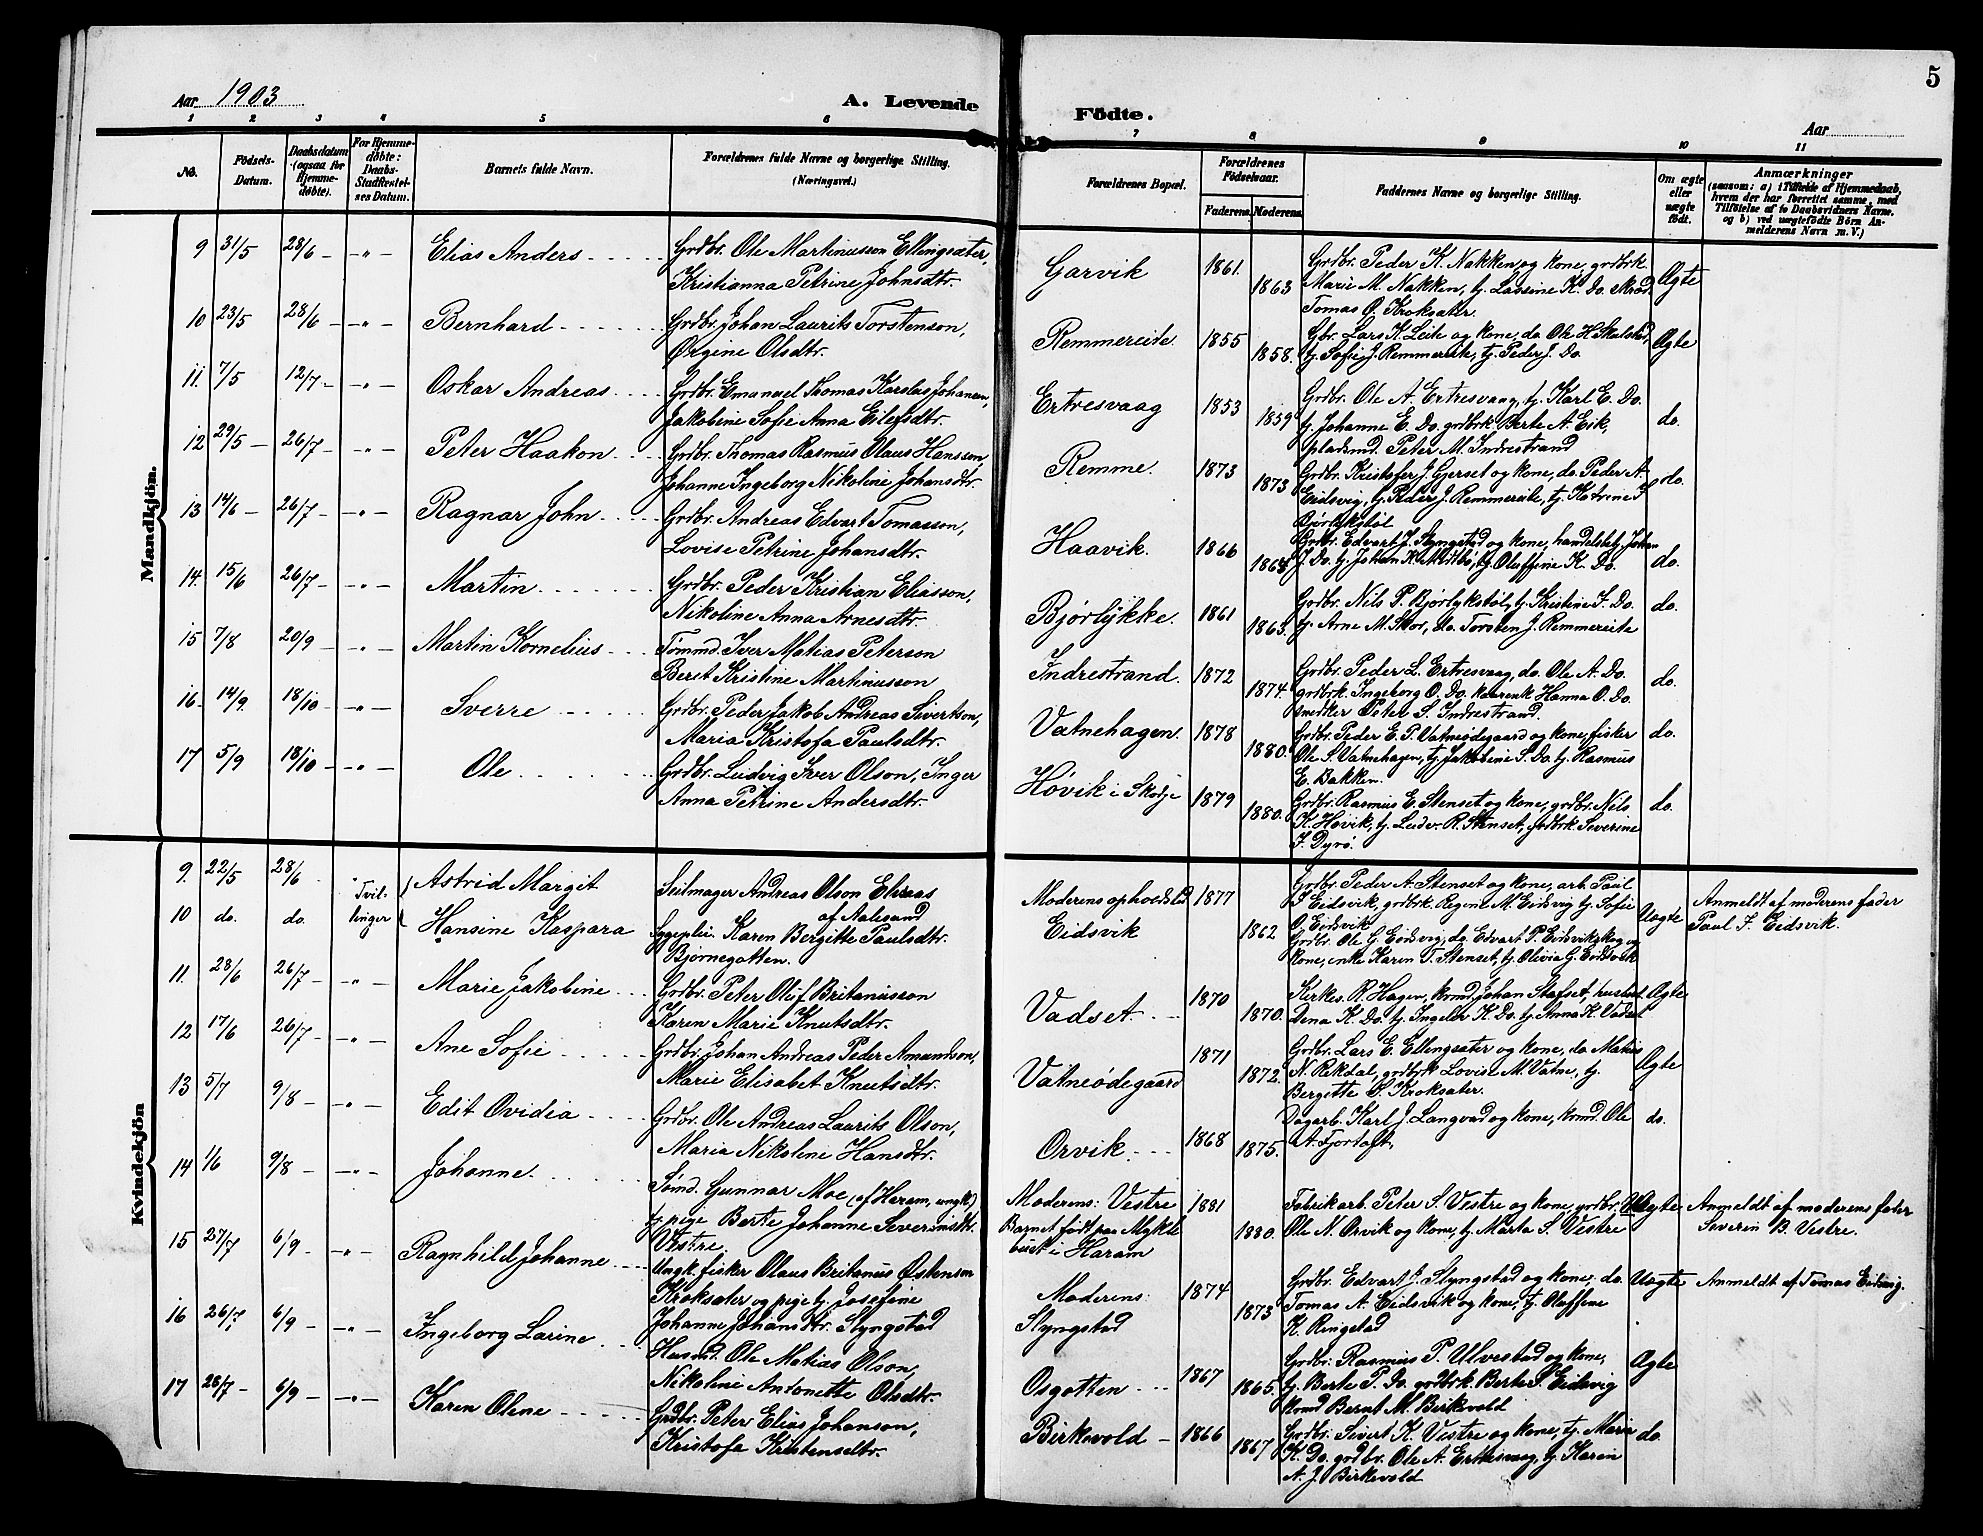 Aar 1903
A. Levende
1 2 3 4 5 6
No.
Födsels-Datum.
Daabsdatum (ogsaa for Hjemmedøbte).
For Hjemmedøbte: Daabs-Stadfæstelses Datum.
Barnets fulde Navn.
Forældrenes fulde Navne og borgerlige Stilling.
(Næringsvei.)
Mandkjön.
9 31/5 28/6 - -"- Elias Anders Grdbr. Ole Martinusson Ellingsæter,
Kristianna Petrine Johnsdtr.
10 23/5 28/6 -"- Bernhard Grdbr. Johan Laurits Torstenson,
Ørgine Olsdtr.
11. 7/5 12/7 - -"- Oskar Andreas Grdbr. Emanuel Thomas Karolus Johansen,
Jakobine Sofie Anna Eilefsdtr.
12 29/5 - 26/7 -"- Peter Haakon Grdbr. Thomas Rasmus Olaus Hansson,
Johanne Ingeborg Nikoline Johansdtr.
13 14/6 - 26/7 -"- Ragnar John Grdbr. Andreas Edvart Tomasson,
Lovise Petrine Johansdtr.
14. 15/6 26/7 -"- Martin Grdbr. Peder Kristian Eliasson,
Nikoline Anna Arnesdtr.
15 7/8 20/9 -"- Martin Kornelius Tommd. Iver Matias Peterson
Berit Kristine Martinusson
16. 14/9. 18/10 -"- Sverre Grdbr. Peder Jakob Andreas Sivertson,
Maria Kristofa Paulsdtr.
17 5/9 18/10 -"- Ole Grdbr. Ludvig Iver Olson, Inger
Anna Petrine Andersdtr.
Kvindekjön
9. 22/5 28/6 Tvillinger Astrid Margit Seilmager Andreas Olson
af Aalesund
10 do. do. Hansine Kaspara Sygeplei. Karen Bergitte Paulsdtr.
Bjørnegotten.
11. 28/6 26/7 - -"- Marie Jakobine Grdbr. Peter Oluf Britaniusson
Karen Marie Knutsdtr.
12 17/6 26/7 - -"- Ane Sofie Grdbr. Johan Andreas Peder Amundson,
Marie Elisabet Knutsdtr.
13 5/7 9/8 - -"- Edit Ovidia Grdbr. Ole Andreas Laurits Olson,
Maria Nikoline Hansdtr.
14 1/6 9/8 - -"- Johanne. Sømd. Gunnar Moe (af Haram, ungk.)
tj. pige Berte Johanne Severinsdtr.
Vestre.
15 27/7 6/9 - -"- Ragnhild Johanne Ungk. fisker Olaus Britanus Østenson
Kroksæter og pige tj. Josefine
Johanne Johansdtr. Slyngstad
16 26/7 6/9 - -"- Ingeborg Larine Husmd. Ole Matias Olson,
Nikoline Antonette Olsdtr.
17 28/7 - 6/9 - -"- Karen Oline Grdbr. Peter Elias Johanson,
Kristofa Kristensdtr.
5
Födte.
Aar
7 8 9 10 11
Forældrenes Bopæl.
Forældrenes Födselsaar.
Faderens. Moderens.
Faddernes Navne og borgerlige Stilling.
Om ægte eller uægte födt.
Anmærkninger
(saasom: a) i Tilfælde af Hjemmedaab,
hvem der har forrettet samme, med
Tilföielse af to Daabsvidners Navne,
og b) ved uægtefödte Börn Anmelderens Navn m. V.)
Garvik 1861. 1863 Grdbr. Peder K. Nakken og kone, grdbrk. Ægte
Marie M. Nakken, tj. Lassine K. Do. Skræd.
Tomas O. Kroksæter.
Remmereite. 1855 1858. Gbr. Lars K. Leite og kone, do. Ole H. Skulstad, Ægte
tj. Sofie J. Remmereite, tj. Peder J. Do.
Ertresvaag 1853 1859 Grdbr. Ole A. Ertresvaag, tj. Karl E. Do. do.
tj. Johanne E. Do. grdbrk. Berte A. Eik,
pladsmd. Peter M. Indrestrand
Remme. 1873 1873 Grdbr. Kristofer J. Gjerset og kone, do. Peder A. do.
Eidsvig, tj. Peder J. Remmereite, tj. Katrine I.
Bjørlykstøl
Haavik. 1866 1868 Grdbr. Edvart J. Slyngstad og kone, handelsbtj. Johan do.
J. Do. tj. Johan K. Midtbø, tj. Oluffine K. Do.
Bjørlykke. 1861 1863. Grdbr. Nils P. Bjørlykstøl, tj. Kristine I. Do. do.
tj. Arne M. Skor, do. Torsten J. Remmereite
Indrestrand. 1872 1874. Grdbr. Peder L. Ertresvaag, do. Ole A. Do. do.
grdbrk. Ingeborg O. Do. kaarenk. Hanna O. Do.
snedker Peter S. Indrestrand.
Vatnehagen. 1878 1880. Grdbr. Peder E. P. Vatneødegaard og kone, fisker do.
Ole S. Vatnehagen, tj. Jakobine S. Do. tj. Rasmus
E. Bakken.
Høvik i Skodje 1879 1880. Grdbr. Rasmus E. Stenset og kone, grdbr. Nils do.
K. Høvik, tj. Ludv. R. Stenset, grdbrk. Severine
I. Dyrø.
Moderens opholdsted 1877 Grdbr. Peder A. Stenset og kone, arb. Paul
Eidsvik 1862 I. Eidsvik, grdbrk. Regine M. Eidsvig tj. Sofie
O. Eidsvik Uægte Anmeldt af moderens fader
Paul I. Eidsvik.
Grdbr. Ole G. Eidsvig, do. Edvart P. Eidsvikskog og
kone, enke Karen T. Stenset, tj. Olivia G. Eidsvik
Vadset. 1870 1870. Kirkes. R. Hagen, krmd. Johan Stafset, hustru Ægte
Dina K. Do. tj. Ingeler K. Do. tj. Anna K. Vadset
Vatneødegaard 1871 1872. Grdbr. Lars E. Ellingsæter og kone, do. Matias Ægte
N. Rekdal, grdbrk Lovise M. Vatne, tj.
Bergitte O. Kroksæter.
Orvik. 1868 1875. Dagarb. Karl J. Langvad og kone, krmd. Ole do.
A. Fjortoft,
Moderens: Vestre 1881 1880. Fabrikarb. Peter S. Vestre og kone, grdbr. Uægte Anmeldt af moderens fader
Barnet født paa Myklebust i Haram Ole N. Orvik og kone, tj. Marta S. Vestre Severin B. Vestre.
Moderens: 1874 1873 Grdbr. Edvart J. Slyngstad og kone, do. Uægte Anmeldt af Tomas Eidsvig.
Slyngstad Tomas A. Eidsvik og kone, tj. Oluffine
K. Ringstad
Osgotten 1867 1865. Grdbr. Rasmus P. Ulvestad og kone, Ægte
tj. Berte P. Do. grdbrk. Berte S. Eidsvig
krmd Bernt M. Birkevold
Birkevold - 1866 1867 Grdbr. Sivert K. Vestre og kone, tj. Maria do.
K. Do. grdbr. Ole A. Ertresvaag, tj. Karen
A. J. Birkevold